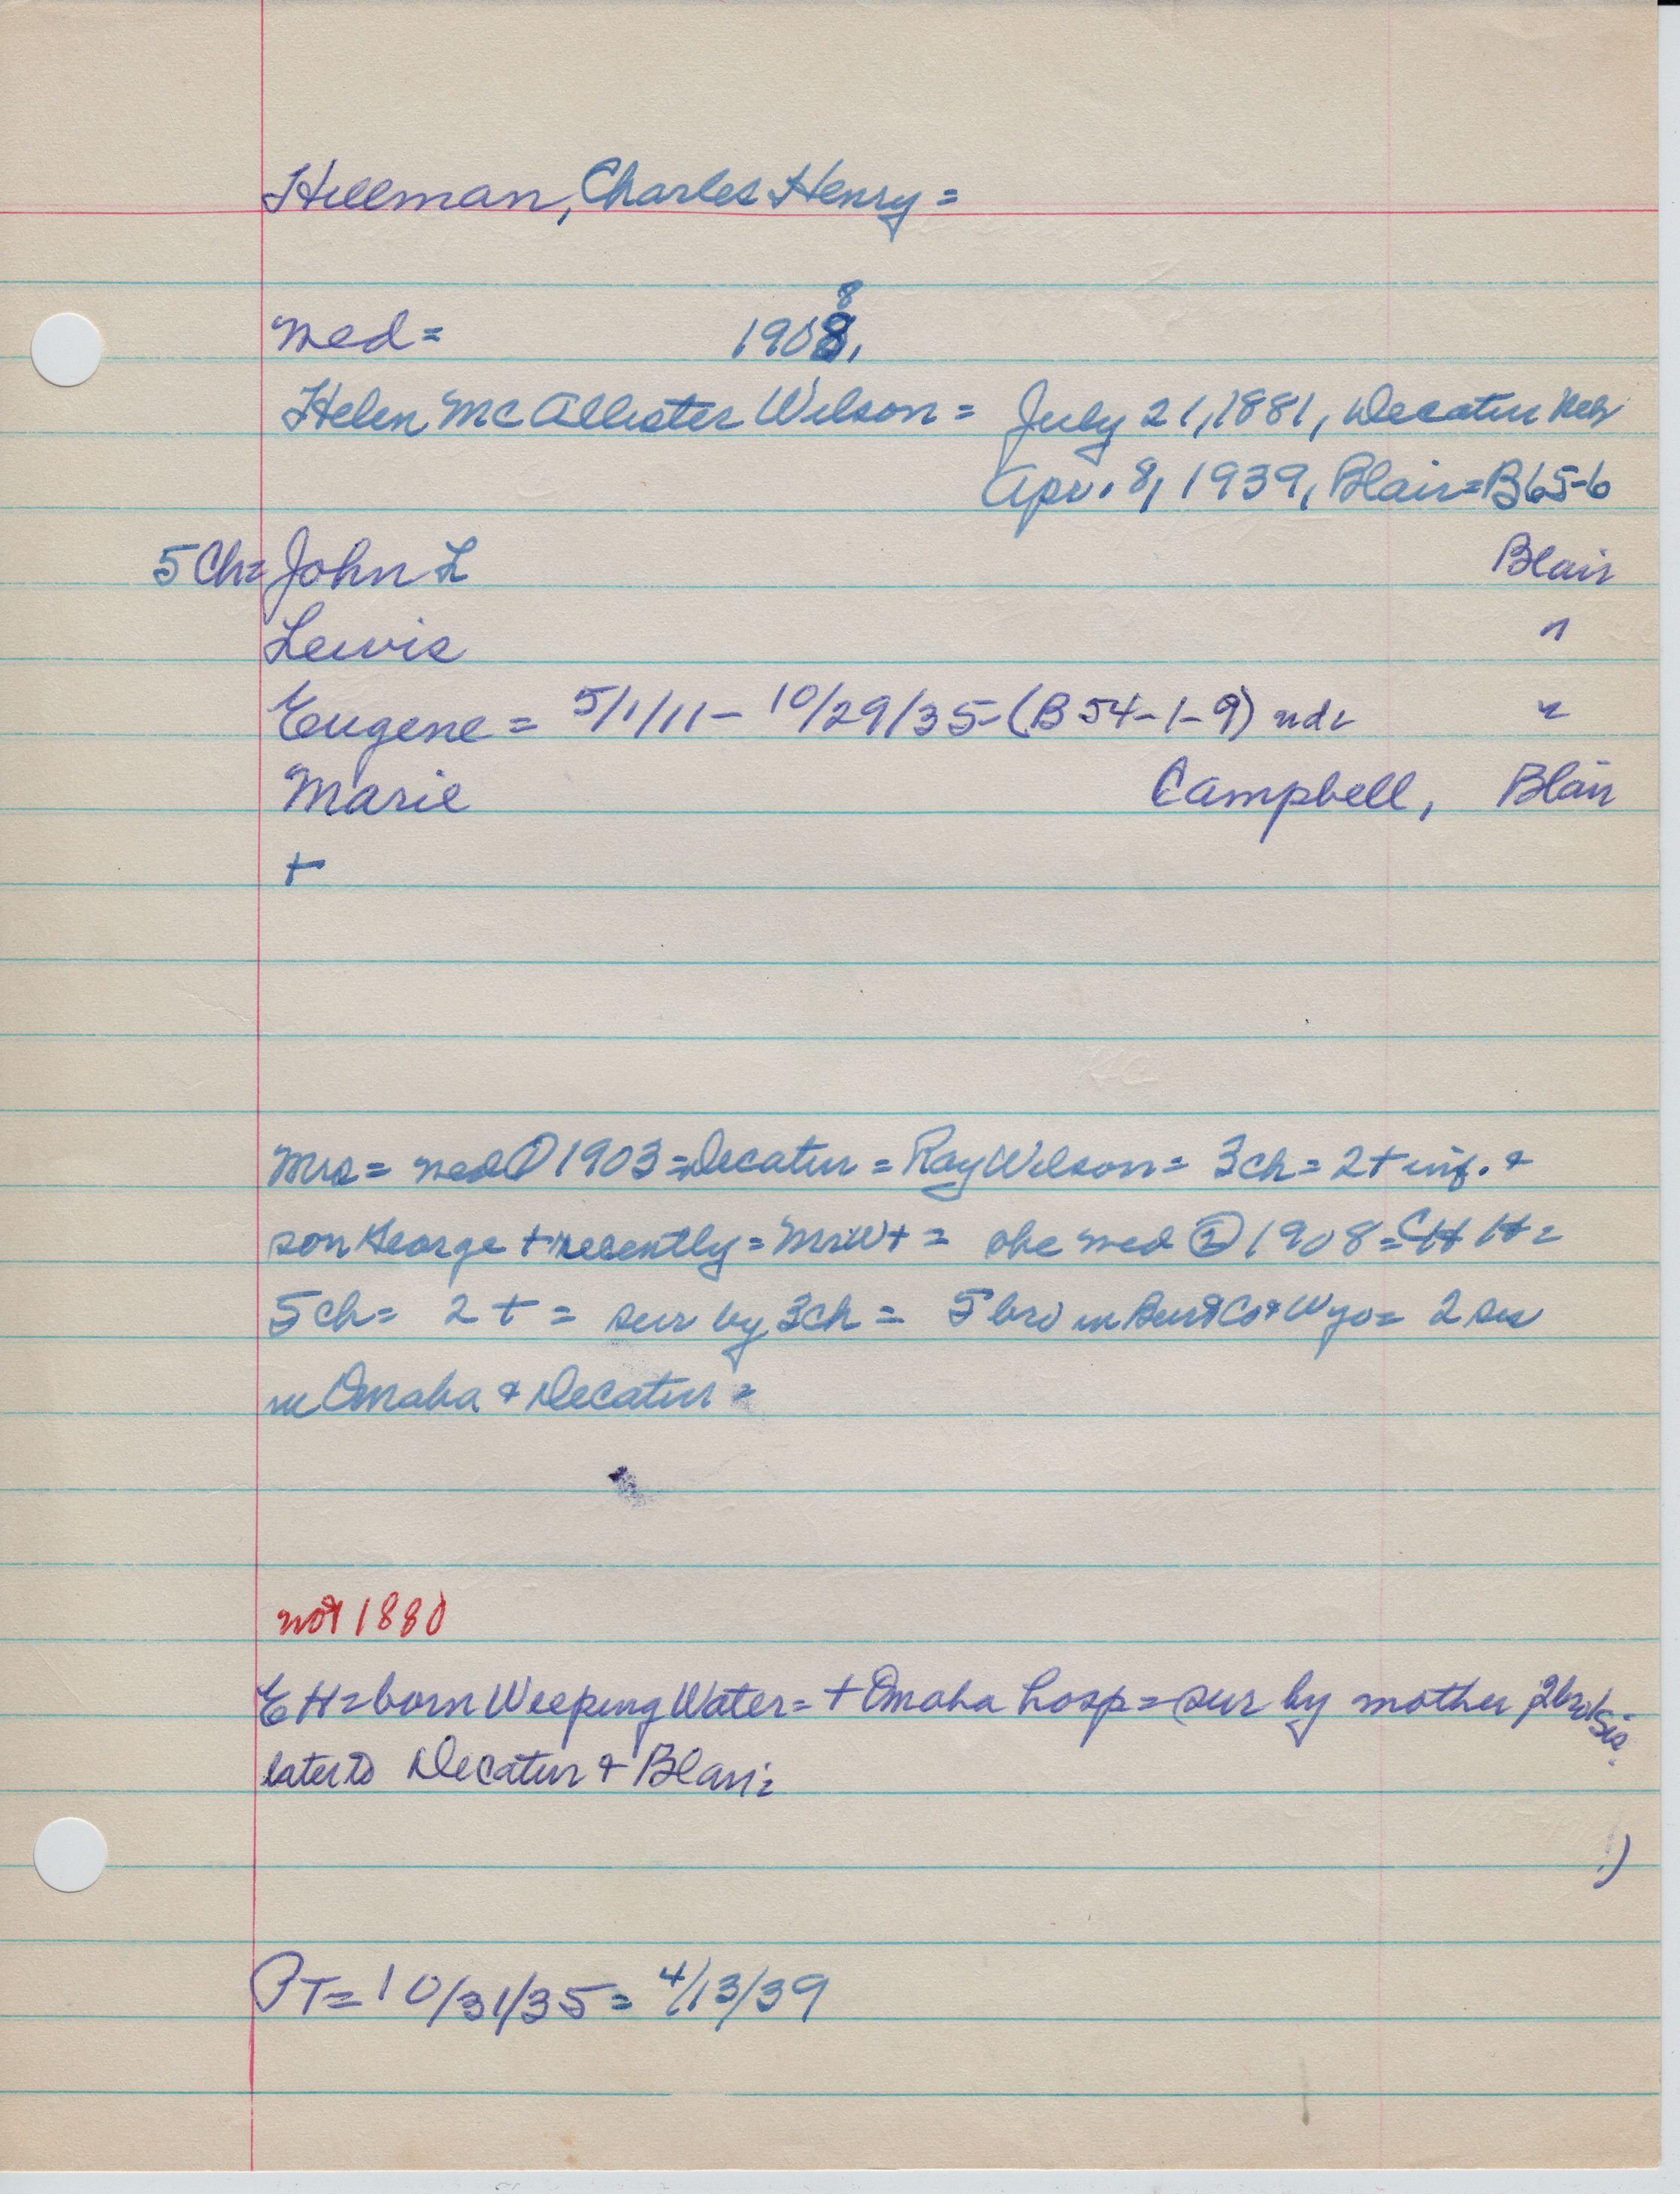 Hillman, Charles Henry =
8
med = 1908,
Helen McAllister Wilson = July 21, 1881, Decatur Neb
Apr. 8, 1939, Blair = B65-6
5 Ch = John L Blair
Lewis "
Eugene = 5/1/11 - 10/29/35 - (B 54-1-9) nd= "
Marie Campbell, Blair
+
Mrs = med ① 1903 = Decatur = Ray Wilson = 3 ch = 2 + inf. &
son George + recently = Mr W + = she med ② 1908 = C H H =
5 ch = 2 + = sur by 3 ch = 5 bro in Burt Co & Wyo = 2 sis
in Omaha & Decatur =
not 1880
E H = born Weeping Water = + Omaha hosp = sur by mother 2 bro 1 sis.
later to Decatur & Blair =
)
PT = 10/31/35 = 4/13/39